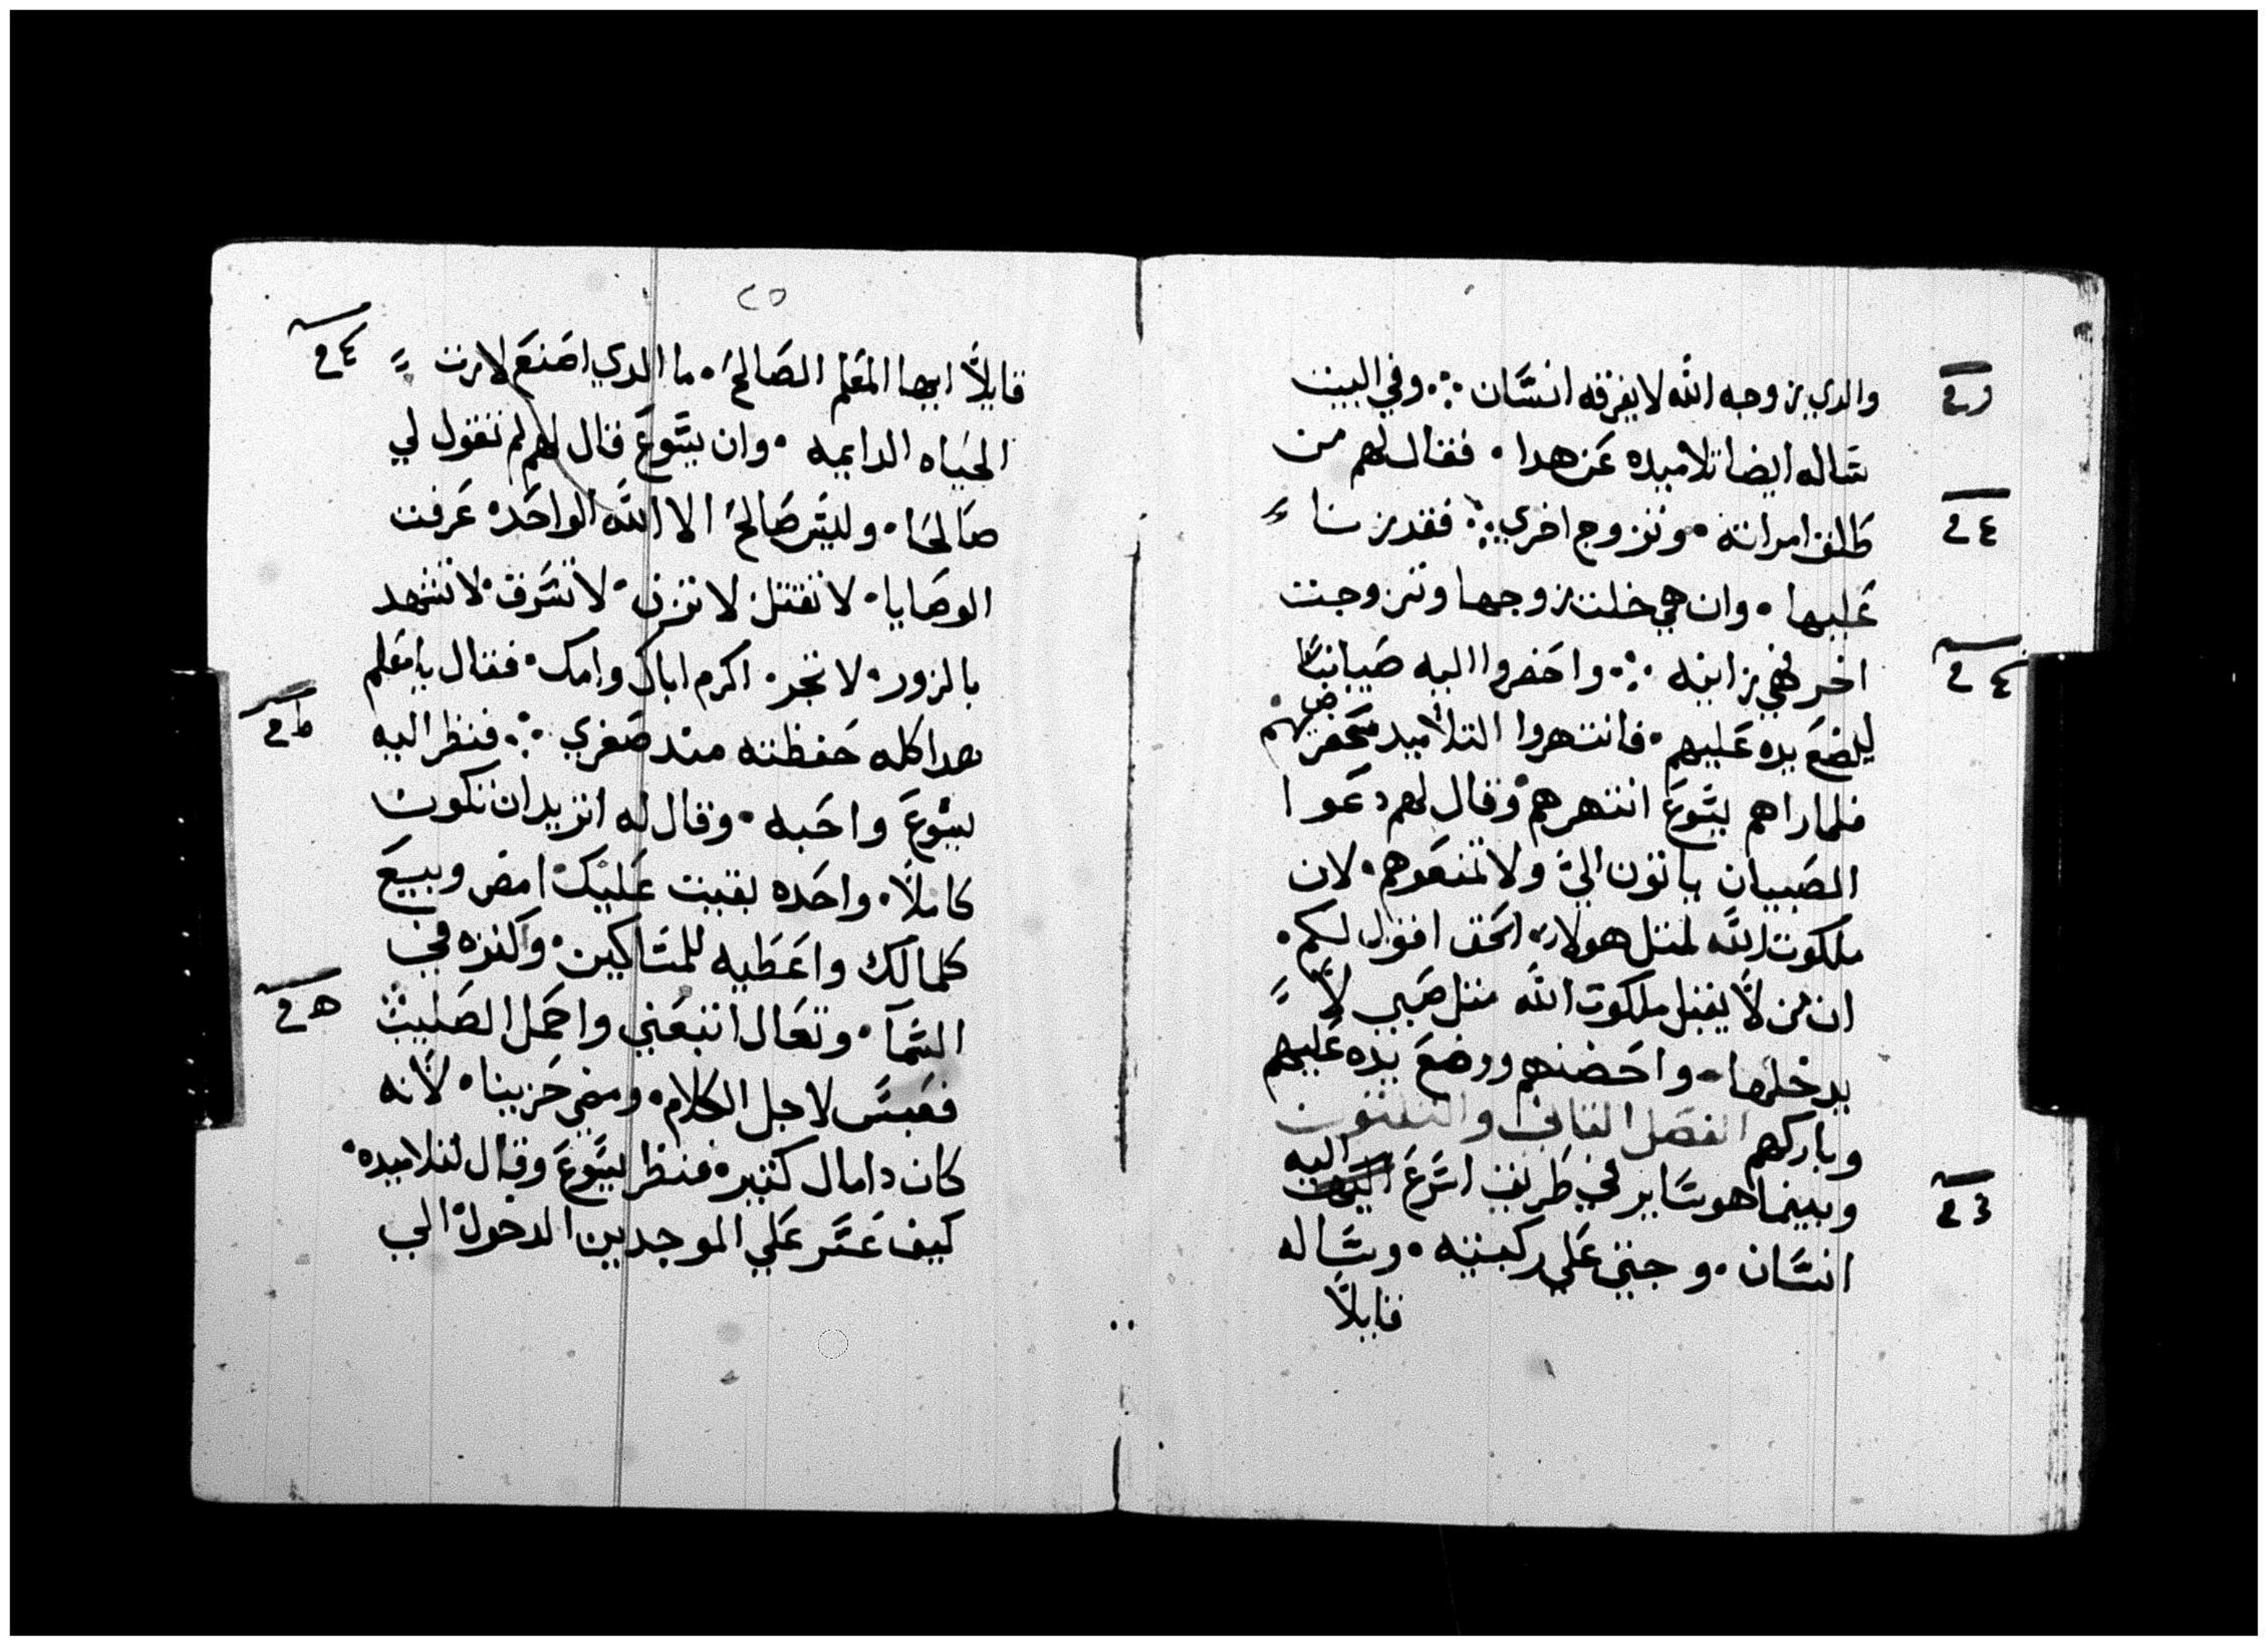 والدي يزوجه الله لا يفرقه انسَّان ؞ وفي البيت
سَاله ايضا تلاميده عَن هدا • فقال لهم من
طلق امراته • وتزوج اخري ؞ فقد زنا
عَليها • وان هي خلت زوجها وتزوجت
اخر فهي زانيه ؞ واحَضروا اليه صَبيانًا
ليضعَ يده عَليهم • فانتهروا التلاميد محَضريهم •
فلما راهم يسَّوعَ انتهرهم • وقال لهم دعَوا
الصَبيان ياتون اليَّ ولا تمنعَوهم • لان
ملكوت الله لمتل هولاء • الحَق اقول لكم •
ان من لَّا يقبل ملكوت الله متل صَبي لَّا
يدخلها • واحَضنهم ووضعَ يده عَليهم
وباركهم الفصَل التاني والتلتون
وبينما هو سَّاير في طَريق اسَّرعَ اليه
انسَّان • وجتي عَلي ركبتيه • وسَّاله
قايلًا
٢٥
قايلًا ايها المعَلم الصَالحَ • ما الدي اصَنعَ لارت
الحَياه الدايمه • وان يسَّوعَ قال لهم لم تقول لي
صَالحَا • وليسَّ صَالحَ الا الله الواحَده عَرفت
الوصَايا • لا تقتل • لا تزن • لا تسَّرق • لا تشهد
بالزور • لا تجر • اكرم اباك وامك • فقال يا معَلم
هدا كله حَفظته مند صَغري ؞ فنظر اليه
يسَّوعَ واحَبه • وقال له اتريد ان تكون
كاملًا • واحَده بقيت عَليك • امض وبيعَ
كلمالك واعَطَيه للمسَاكين • وكنزه في
السَّمآ • وتعَال اتبعَني واحَمل الصَليب
فعَبسَ لاجل الكلام • ومضي حَزينا • لَانه
كان دا مال كتير • فنظر يسَّوعَ وقال لتلاميده •
كيف عَسَّر عَلي الموجدين الدخول الي